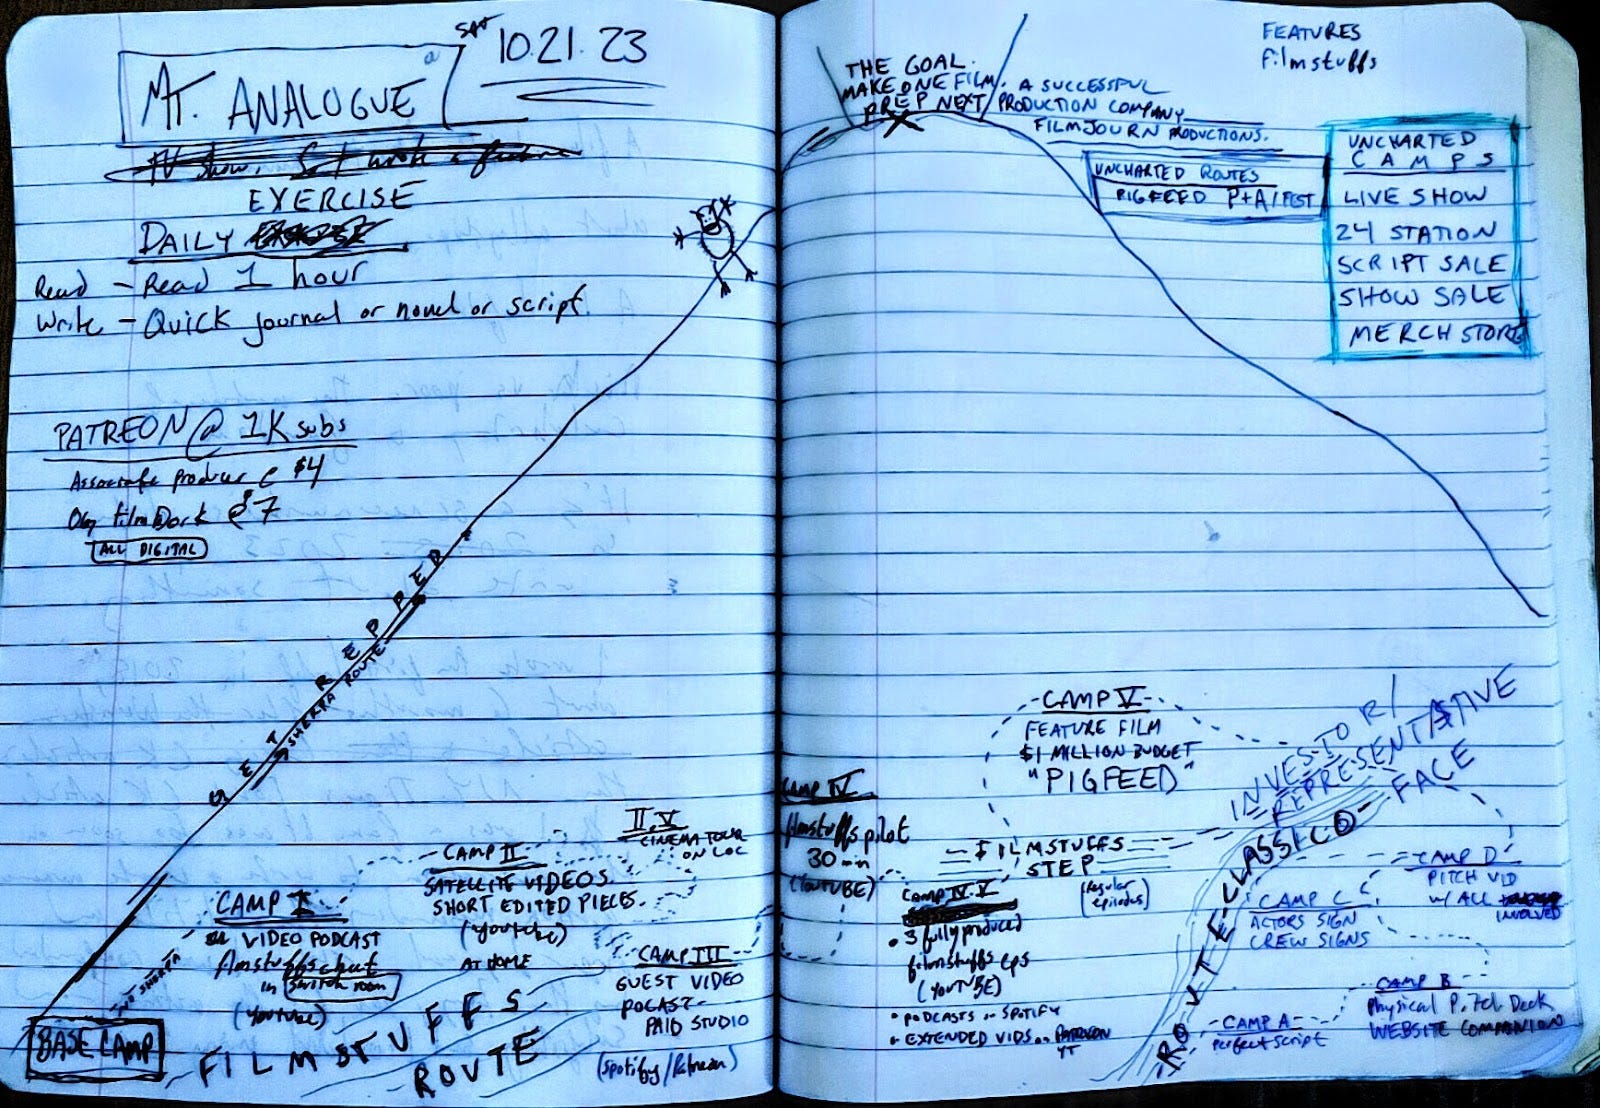 SAT
10.21.23
MT. ANALOGUE
TV show.
EXERCISE
DAILY
Read - Read 1 hour
Write - Quick journal or novel or script.
PATREON @ 1K subs
Associate producer @ $4
Filmdork @ $7
ALL DIGITAL
GET REPPED.
SHERPA ROUTE
BASE CAMP
CAMP I
VIDEO PODCAST
filmstuffs chat
in switch room
(YOUTUBE)
CAMP II
SATELLITE VIDEOS.
SHORT EDITED PIECES.
(YOUTUBE)
AT HOME
II.V
CINEMA TOUR
ON LOC
CAMP III
GUEST VIDEO
POCAST-
PAID STUDIO
(Spotify/Patreon)
FILMSTUFFS
ROUTE
FEATURES
filmstuffs
THE GOAL.
MAKE ONE FILM.
PREP NEXT
A SUCCESSFUL
PRODUCTION COMPANY
FILMJOURN PRODUCTIONS.
UNCHARTED ROUTES
PIGFEED P+A/FEST
UNCHARTED
CAMPS
LIVE SHOW
24 STATION
SCRIPT SALE
SHOW SALE
MERCH STORE
CAMP IV
filmstuffs pilot
30 min
(YOUTUBE)
CAMP V
FEATURE FILM
$1 MILLION BUDGET
"PIGFEED"
FILMSTUFFS
STEP
(Regular
episodes)
CAMP IV.V
• 3 fully produced
filmstuffs eps
(YOUTUBE)
• PODCASTS on SPOTIFY
• EXTENDED VIDS on PATREON
YT
INVESTOR/
REPRESENTATIVE
FACE
CLASSICO
ROUTE
CAMP D
PITCH VID
W/ ALL
INVOLVED
CAMP C
ACTORS SIGN
CREW SIGNS
CAMP B
Physical Pitch Deck
WEBSITE COMPANION
CAMP A
perfect script